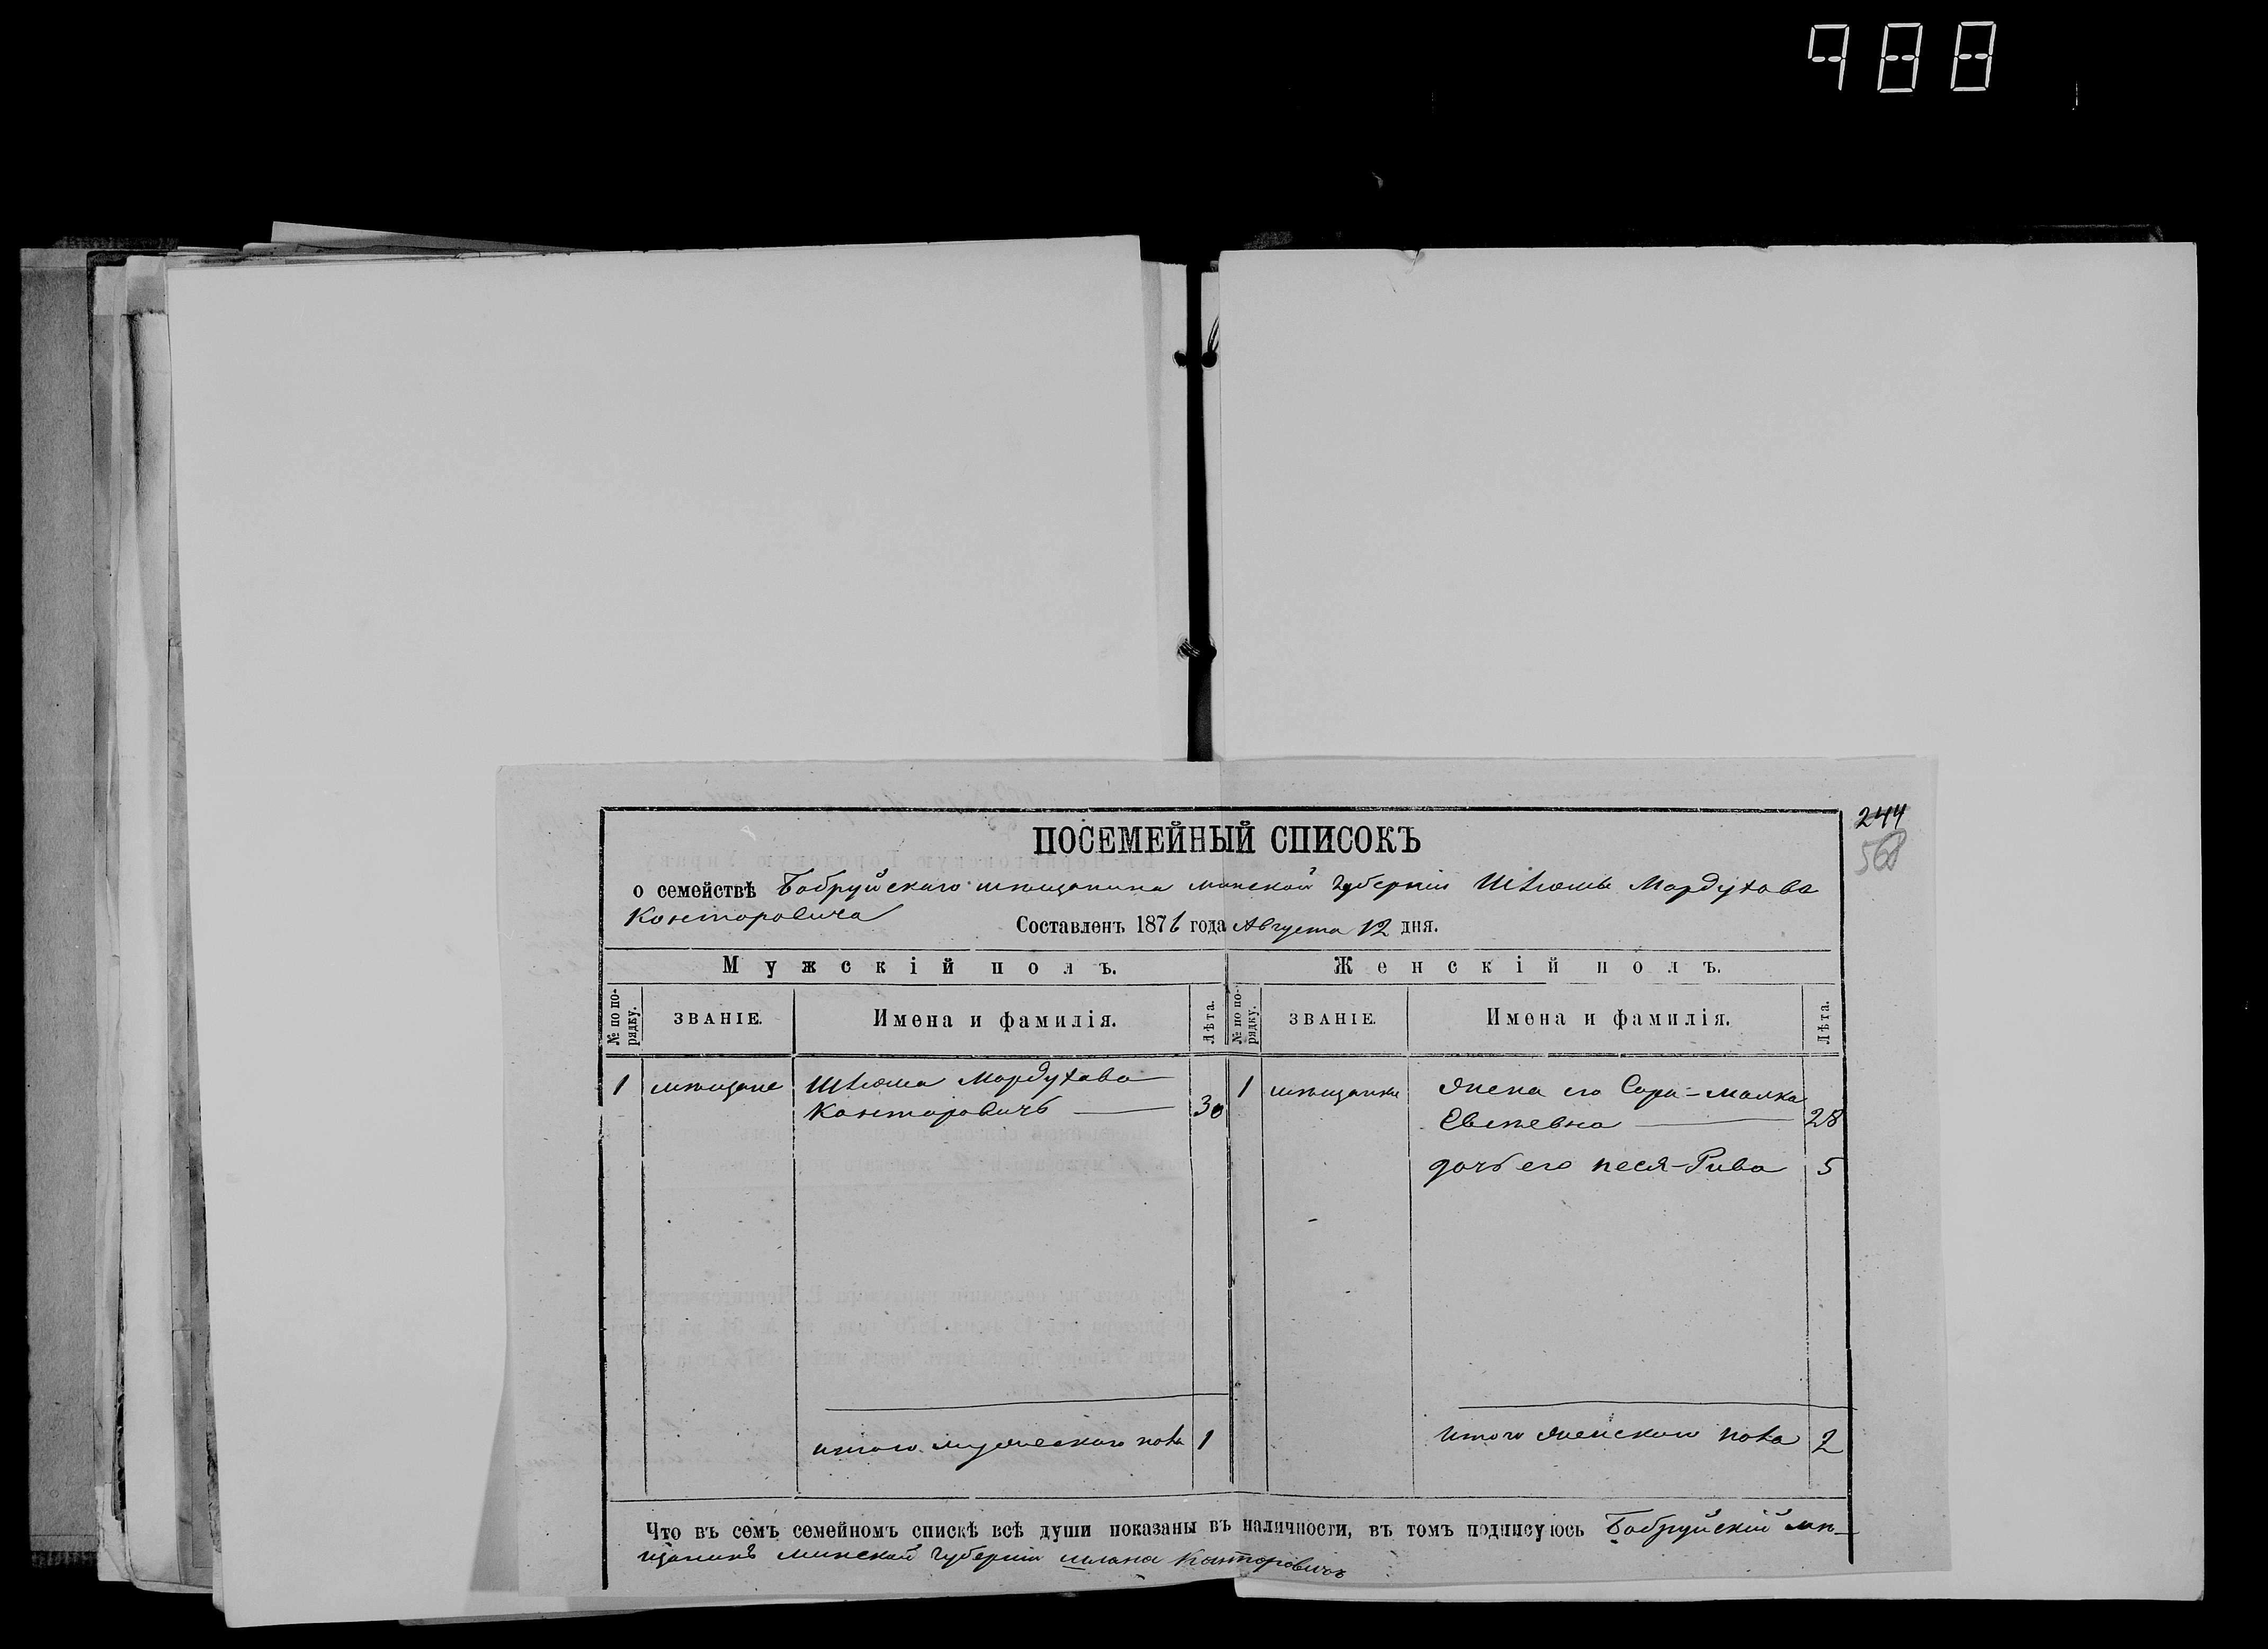 988
244
568
ПОСЕМЕЙНЫЙ СПИСОКЪ
о семействѣ Бобруйскаго мѣщанина минской губерніи Шлiомы Мордухова
Конторовича Составленъ 1876 года Августа 12 дня.
Мужскій полъ. Женскій полъ.
№ по порядку. ЗВАНІЕ. Имена и фамилія. Лѣта. № по порядку. ЗВАНІЕ. Имена и фамилія. Лѣта.
1 мѣщане Шлiома Мордухова 1 мѣщанки жена его Сора-Малка
Конторовичъ 30 28
дочь его песя-Рива 5
итого мужескаго пола 1 итого женскаго пола 2
Что въ семъ семейномъ спискѣ всѣ души показаны въ наличности, въ томъ подписуюсь Бобруйскій мѣ-
щанинъ минской губерніи Канторовичъ